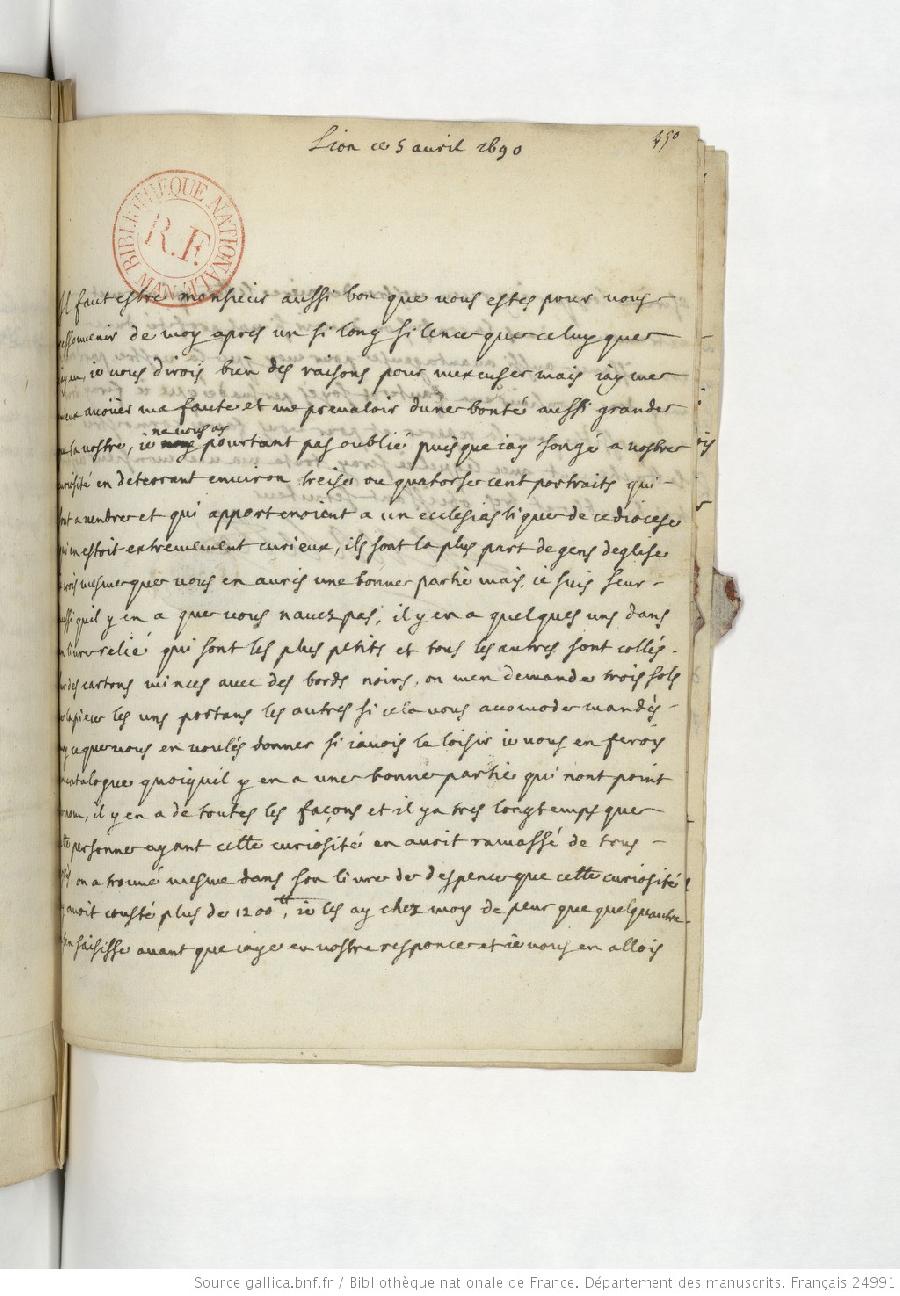 Lion ce 5 avril 1690
450
BIBLIOTHEQUE NATIONALE MAN
R.F.
Il faut estre monsieur aussi bon que vous estes pour vous
ressouvenir de moy apres un si long silence que celuy que
jay eu, ie vous dirois bien des raisons pour mexcuser mais iayme
mieux avoüer ma faute et me prevaloir dune bonté aussi grande
que la vostre, ie ne vous ay pourtant pas oublié puisque iay songé a vostre
curiosité en deterrant environ treise ou quatorse cent portraits qui
sont a vendre et qui appartenoient a un ecclesiastique de ce diocese
qui estoit extremement curieux, ils sont la plus part de gens deglise
ie crois mesme que vous en aurés une bonne partie mais ie suis seur
aussi quil y en a que vous navez pas, il y en a quelques uns dans
un livre relié qui sont les plus petits et tous les autres sont collés
sur des cartons minces avec des bords noirs, on men demande trois sols
de la piece les uns portans les autres si cela vous acomode mandés
moy ce que vous en voulés donner si iavois le loisir ie vous en ferois
un catalogue quoiquil y en a une bonne partie qui nont point
de nom, il y en a de toutes les façons et il y a tres longtemps que
cette personne ayant cette curiosité en avoit ramassé de tous
on a trouvé mesme dans son livre de despence que cette curiosité
luy avoit cousté plus de 1200 tt, ie les ay chez moy de peur que quelquautre
sen saisisse avant que iaye eu vostre responce et ie vous en allois
Source gallica.bnf.fr / Bibliothèque nationale de France. Département des manuscrits. Français 24991